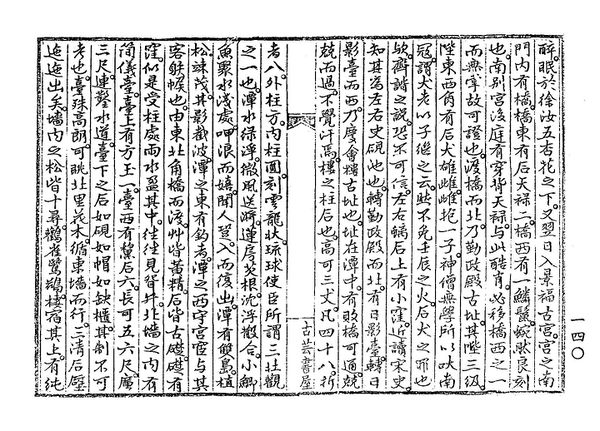 醉眠於徐汝五杏花之下。又翌日入景福古宮。宮之南
門內有橋。橋東有石天祿二。橋西有一。鱗鬣蜿然良刻
也。南別宮後庭有穿背天祿。與此酷肖。必移橋西之一
而無掌故可證也。渡橋而北。乃勤政殿古址。其陛三級。
陛東西角有石犬雌雄。雌抱一子。神僧無學所以吠南
寇。謂犬老以子繼之云。然不免壬辰之火。石犬之罪也
歟。齊諧之說。恐不可信。左右螭石上有小窪。近讀宋史
知其爲左右史硯池也。轉勤政殿而北。有日影臺。轉日
影臺而西。乃慶會樓古址也。址在潭中。有敗橋可通。兢
兢而過。不覺汗焉。樓之柱石也。高可三丈。凡四十八。折
古芸書屋
者八。外柱方。內柱圓。刻雲龍狀。琉球使臣所謂三壯觀
之一也。潭水綠淨。微風送漪。蓮房芡根。沈浮散合。小鯽
魚聚水淺處。呷浪而嬉。聞人跫。入而復出。潭有雙島。植
松竦茂。其影截波。潭之東有釣者。潭之西守宮宦與其
客帿候也。由東北角橋而渡。艸皆黃精。石皆古礎。礎有
窪。似是受柱處。雨水盈其中。往往見眢井。北墻之內有
簡儀臺。臺上有方玉一。臺西有黳石六。長可五六尺。廣
三尺。連鑿水道。臺下之石如硯如帽如缺櫃。其制不可
考也。臺殊高朗。可眺北里花木。循東墻而行。三淸石壁
迤迤出矣。墻內之松皆十尋。鸛雀鷺鶿棲宿其上。有純
一四〇